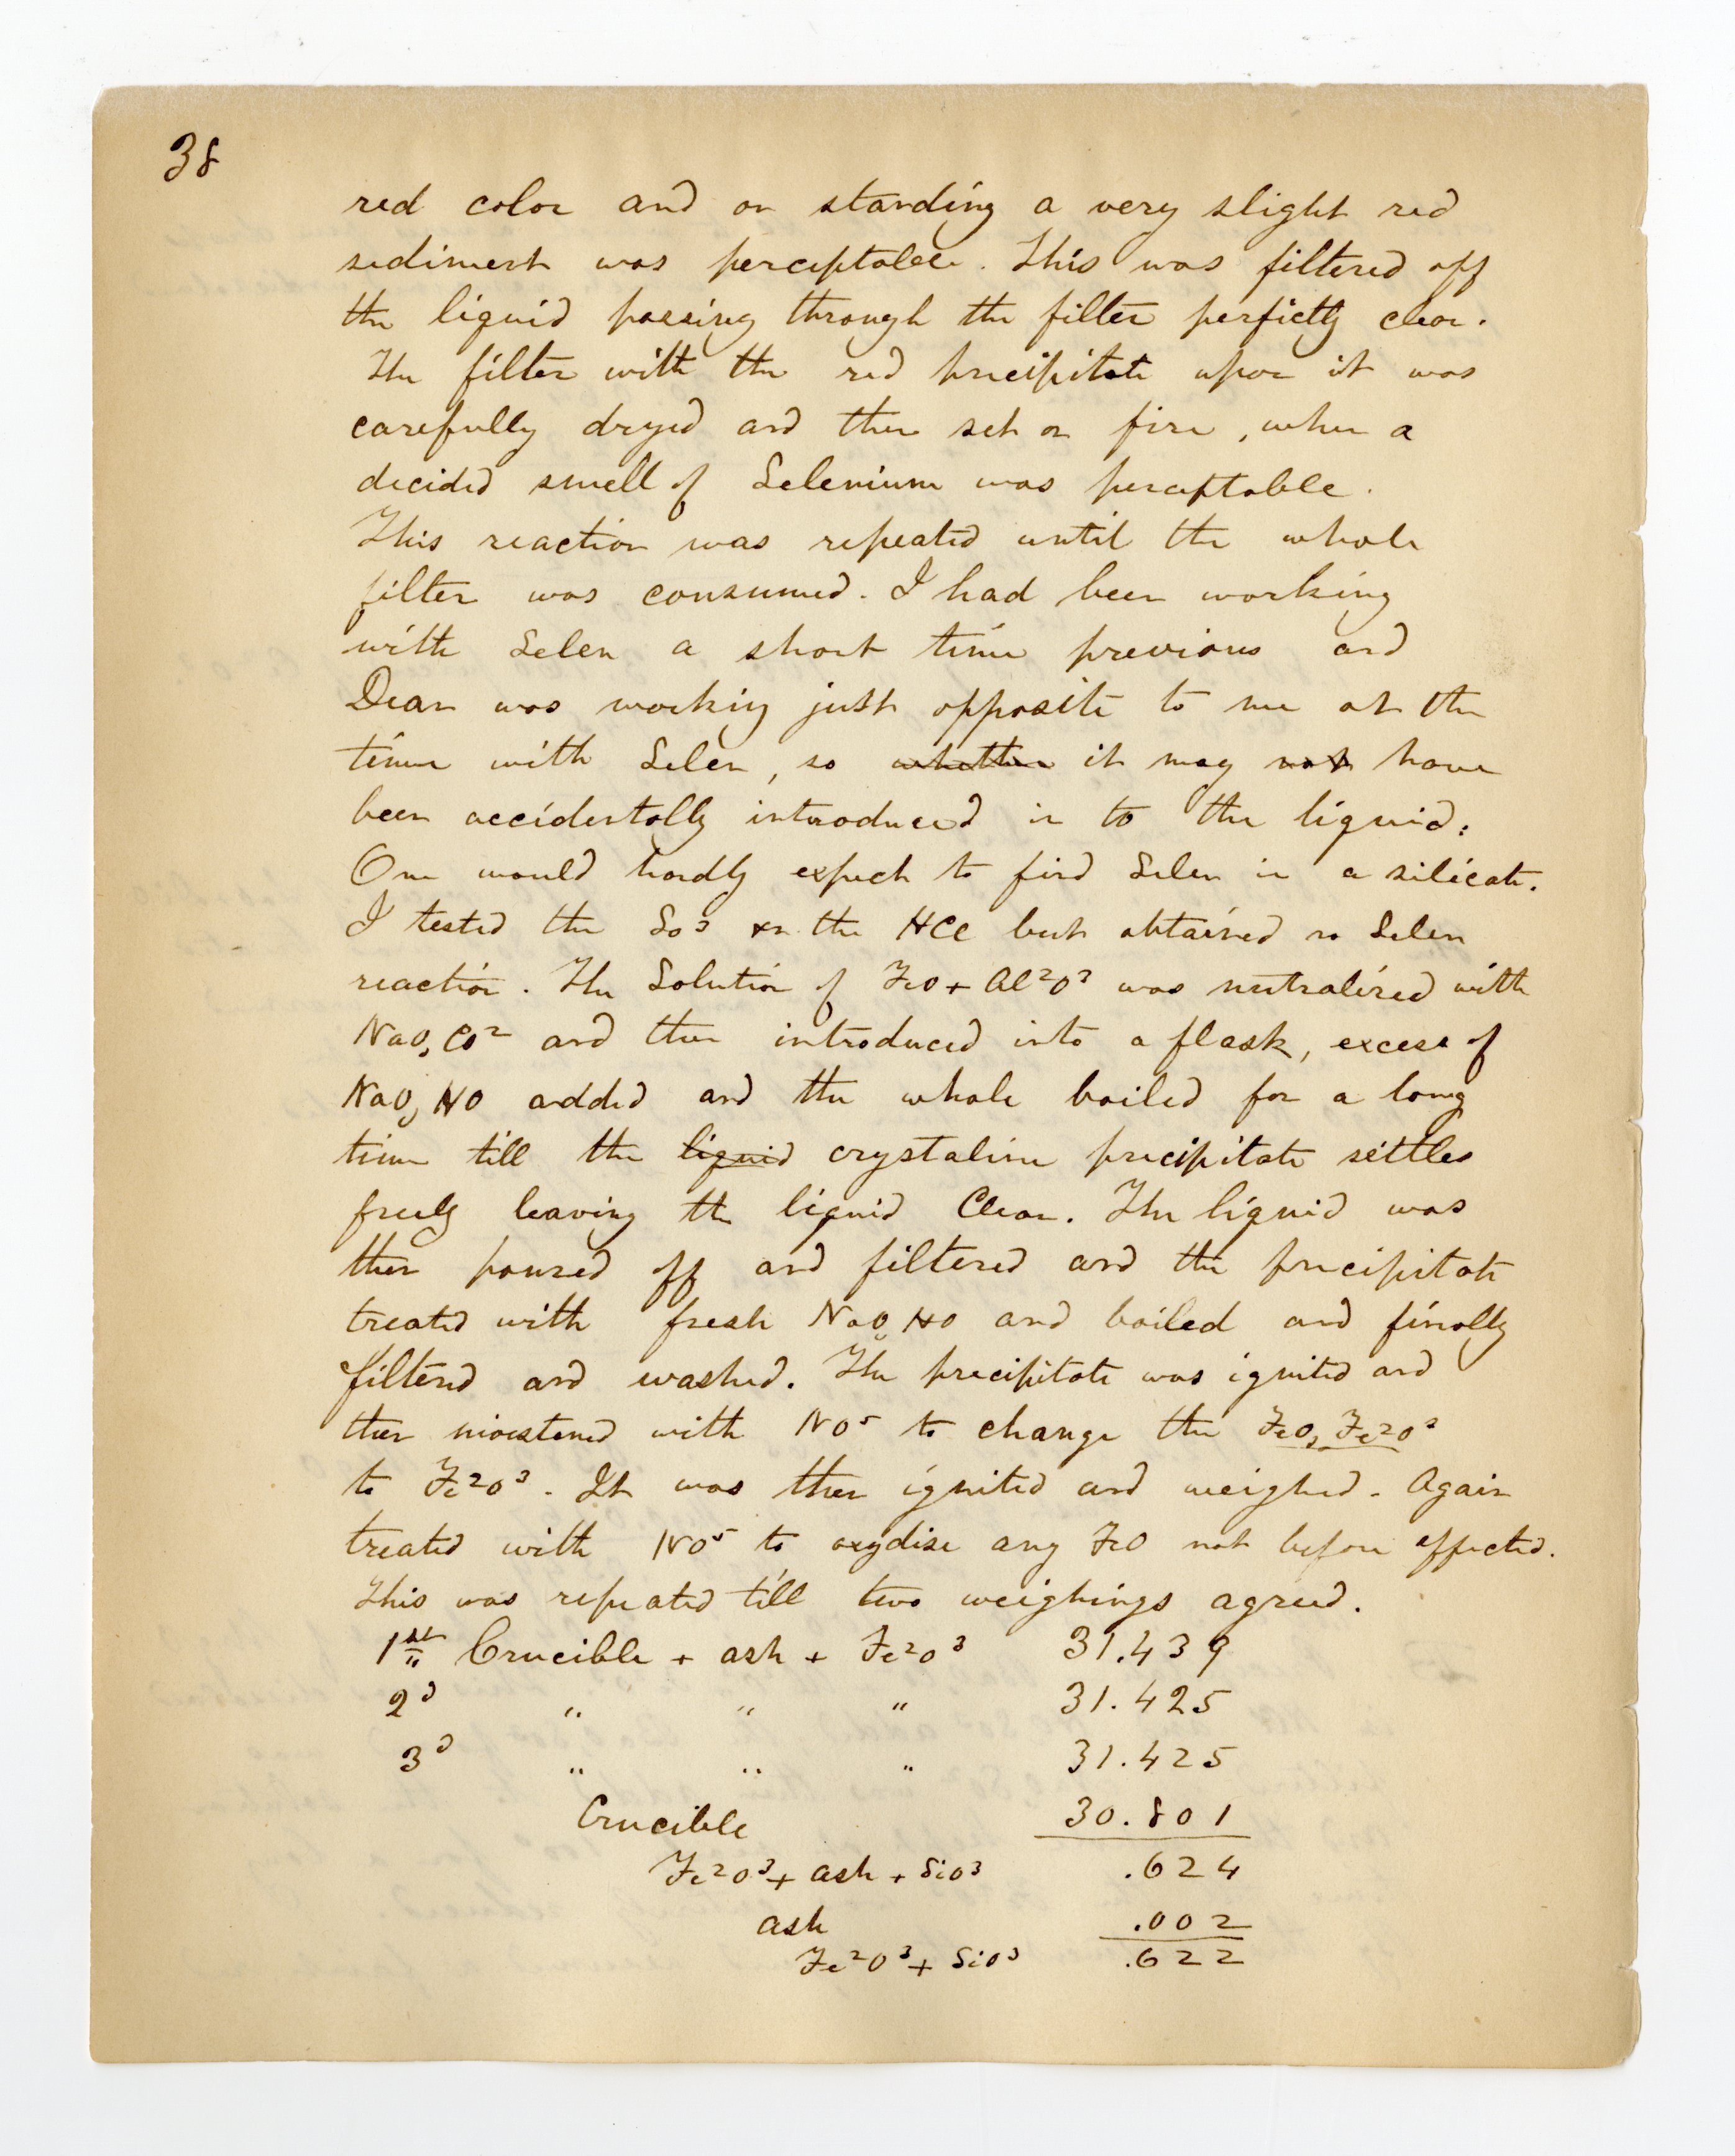 38
red color and on standing a very slight red
sediment was perceptable. This was filtered off
the liquid passing through the filter perfictly clear.
The filter with the red precipitate upon it was
carefully dryed and then set on fire, when a
decided smell of Selenium was perceptable.
This reaction was repeated until the whole
filter was consumed. I had been working
with Selen a short time previous and
Dean was working just opposite to me at the
time with Selen, so whether it may not have
been accidentally introduced in to the liquid.
One would hardly expect to find Selen in a silicate.
I tested the So³ the HCl but obtained no Selen
reaction. The Solution of FeO + Al²O³ was nutralized with
NaO,CO² and then introduced into a flask, excess of
NaO,HO added and the whole boiled for a long
time till the liquid crystaline precipitate settles
freely leaving the liquid Clear. The liquid was
then poured off and filtered and the precipitate
treated with fresh NaO,HO and boiled and finally
filtered and washed. The precipitate was ignited and
then moistened with NO⁵ to change the FeO,Fe²O³
to Fe²O³. It was then ignited and weighed. Again
treated with NO⁵ to oxydise any FeO not before effected.
This was repeated till two weighings agreed.
1st Crucible + ash + Fe²O³ 31.439
2d " " " 31.425
3d " " " 31.425
Crucible 30.801
Fe²O³ + ash + SiO³ .624
ash .002
Fe²O³ + SiO³ .622